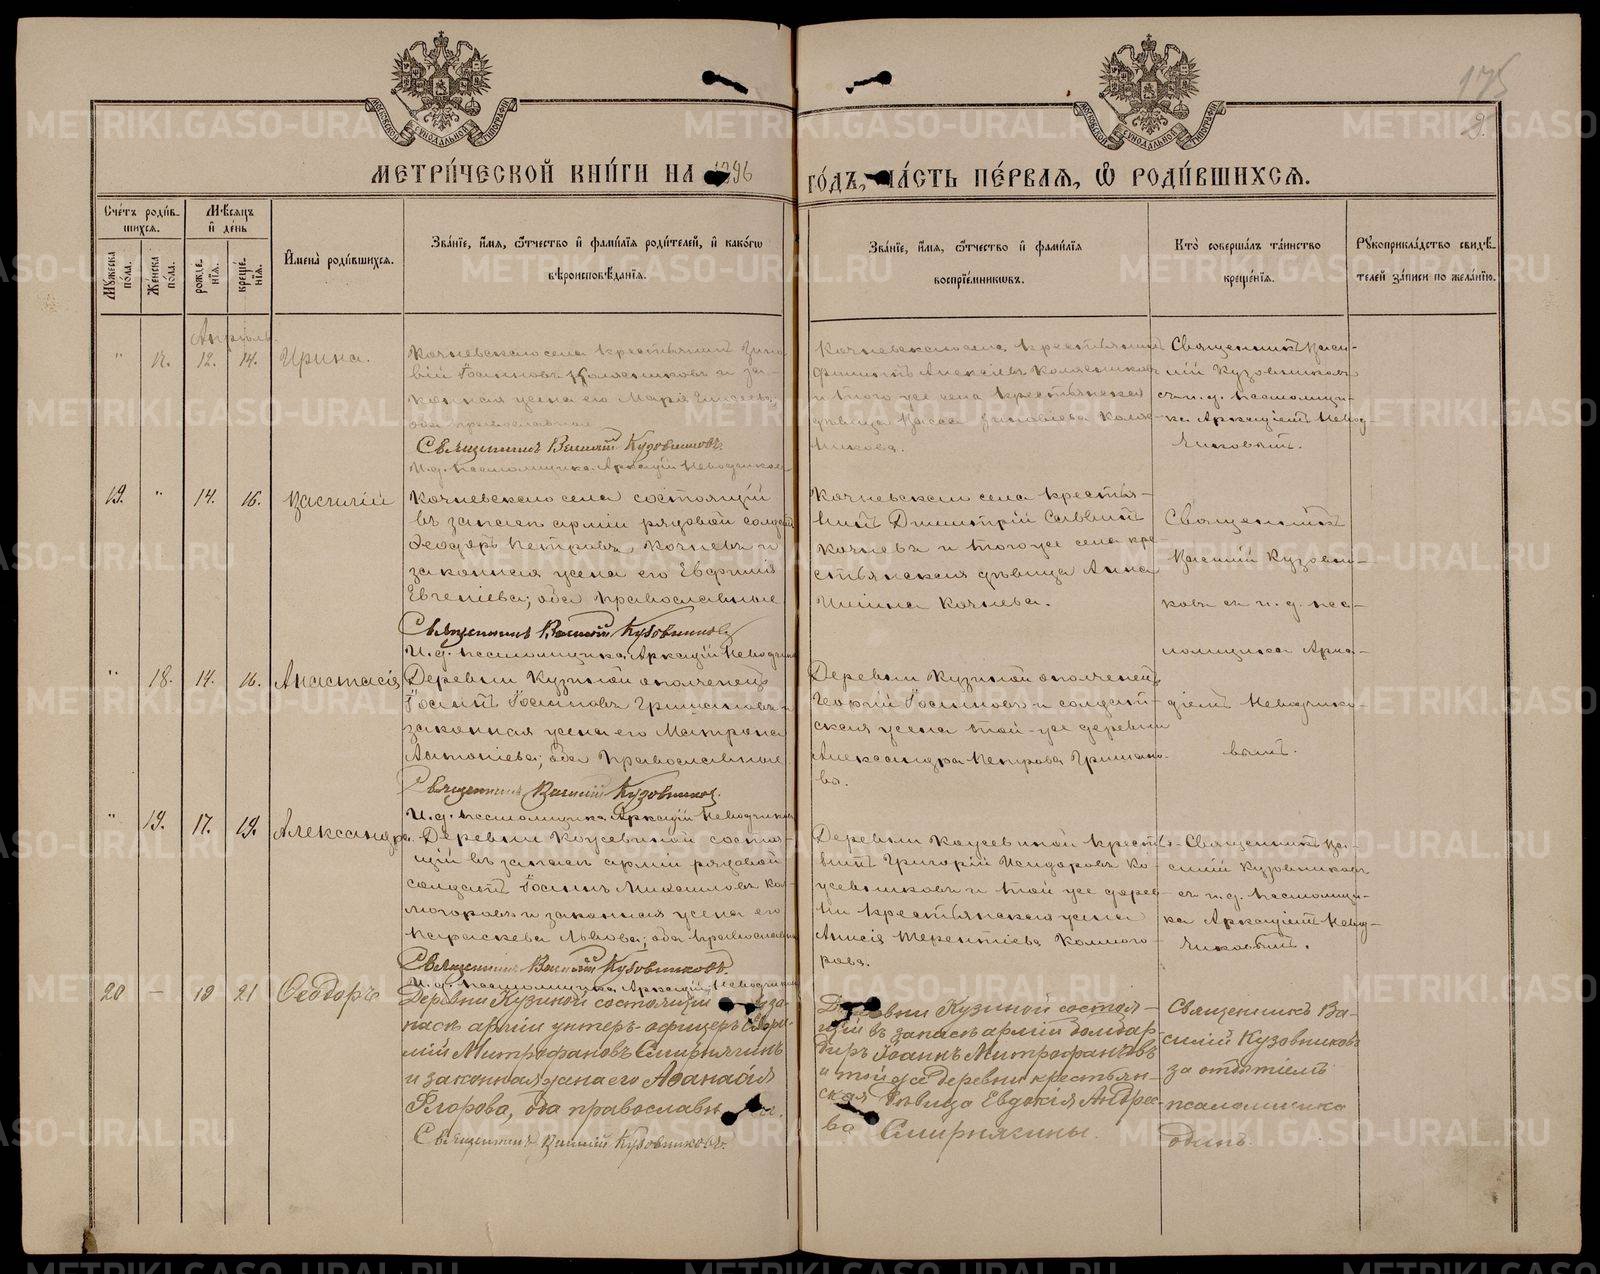 175
9.
МОСКОВСКОЙ СѴНОДАЛЬНОЙ ТИПОГРАФІИ
МОСКОВСКОЙ СѴНОДАЛЬНОЙ ТИПОГРАФІИ
МЕТРИ́ЧЕСКОЙ КНИ́ГИ НА 1896
ГО́ДЪ, ЧА́СТЬ ПЕ́РВАЯ, Ѡ РОДИ́ВШИХСЯ.
Сче́тъ роди́в-
шихся.
Мꙋжеска по́ла.
Же́нска по́ла.
Мѣ́сяцъ и҆ де́нь
рожде́-
нїя.
креще́-
нїя.
И҆мена̀ роди́вшихся.
Зва́нїе, и҆́мя, ѻ҆́тчество и҆ фами́лїя роди́телей, и҆ како́гѡ
вѣроисповѣ́данїя.
Зва́нїе, и҆́мя, ѻ҆́тчество и҆ фами́лїя
воспрїе́мникѡвъ.
Кто̀ соверша́лъ та́инство
креще́нїя.
Рꙋкоприкла́дство свидѣ́-
телей за́писи по жела́нїю.
Апрѣль
" 12. 14. Ирина.
Кочневскаго села крестьянинъ Зино-
вій Іоанновъ Колясниковъ и за-
конная жена его Марія
оба православные
Священникъ Василій Кузовниковъ.
И. д. псаломщика Аркадій Неводчиковъ
Кочневскаго села крестьянинъ
Алексѣевъ Колясниковъ
и того же села крестьянская
дѣвица Зиновіева Коляс-
никова.
Священникъ Васи-
лій Кузовниковъ
съ и. д. псаломщи-
ка Аркадіемъ Невод-
чиковымъ.
19. " 14. 16. Василій
Кочневскаго села состоящій
въ запасѣ арміи рядовой солдатъ
Ѳеодоръ Петровъ Кочневъ и
законная жена его Евфимія
Евгеніева; оба православные
Священникъ Василій Кузовниковъ
И. д. псаломщика Аркадій Неводчиковъ
Кочневскаго села крестья-
нинъ Димитрій Саввинъ
Кочневъ и того же села кре-
стьянская дѣвица Анна
Кочнева.
Священникъ
Василій Кузовни-
ковъ съ и. д. пса-
ломщика Арка-
діемъ Неводчико-
вымъ.
" 18. 14. 16. Анастасія
Деревни Кузиной ополченецъ
Іоаннъ Іоанновъ Гришановъ и
законная жена его Матрона
Антоніева; оба православные
Священникъ Василій Кузовниковъ.
И. д. псаломщика Аркадій Неводчиковъ
Деревни Кузиной ополченецъ
Георгій Іоанновъ и солдат-
ская жена той-же деревни
Александра Петрова Гришано-
ва.
" 19. 17. 19. Александра
Деревни Кожевиной состоя-
щій въ запасѣ арміи рядовой
солдатъ Іоаннъ Михаиловъ Кол-
могоровъ и законная жена его
Параскева Львова; оба православные
Священникъ Василій Кузовниковъ.
И. д. псаломщика Аркадій Неводчиковъ
Деревни Кожевиной крестья-
нинъ Григорій Исидоровъ Ко-
жевниковъ и той же дерев-
ни крестьянская жена
Анисія Терентіева Колмого-
рова.
Священникъ Ва-
силій Кузовниковъ
съ и. д. псаломщи-
ка Аркадіемъ Невод-
чиковымъ.
20 – 19 21 Ѳеодоръ
Деревни Кузиной состоящій въ за-
пасѣ арміи унтеръ-офицеръ
Митрофановъ Смирнягинъ
и законная жена его Аѳанасія
Флорова, оба православные.
Священникъ Василій Кузовниковъ.
Деревни Кузиной состоя-
щій въ запасѣ арміи бомбар-
диръ Іоаннъ Митрофановъ
и той же деревни крестьян-
ская дѣвица Евдокія Андрее-
ва Смирнягины.
Священникъ Ва-
силій Кузовниковъ
за отбытіемъ
псаломщика
одинъ.
METRIKI.GASO-URAL.RU